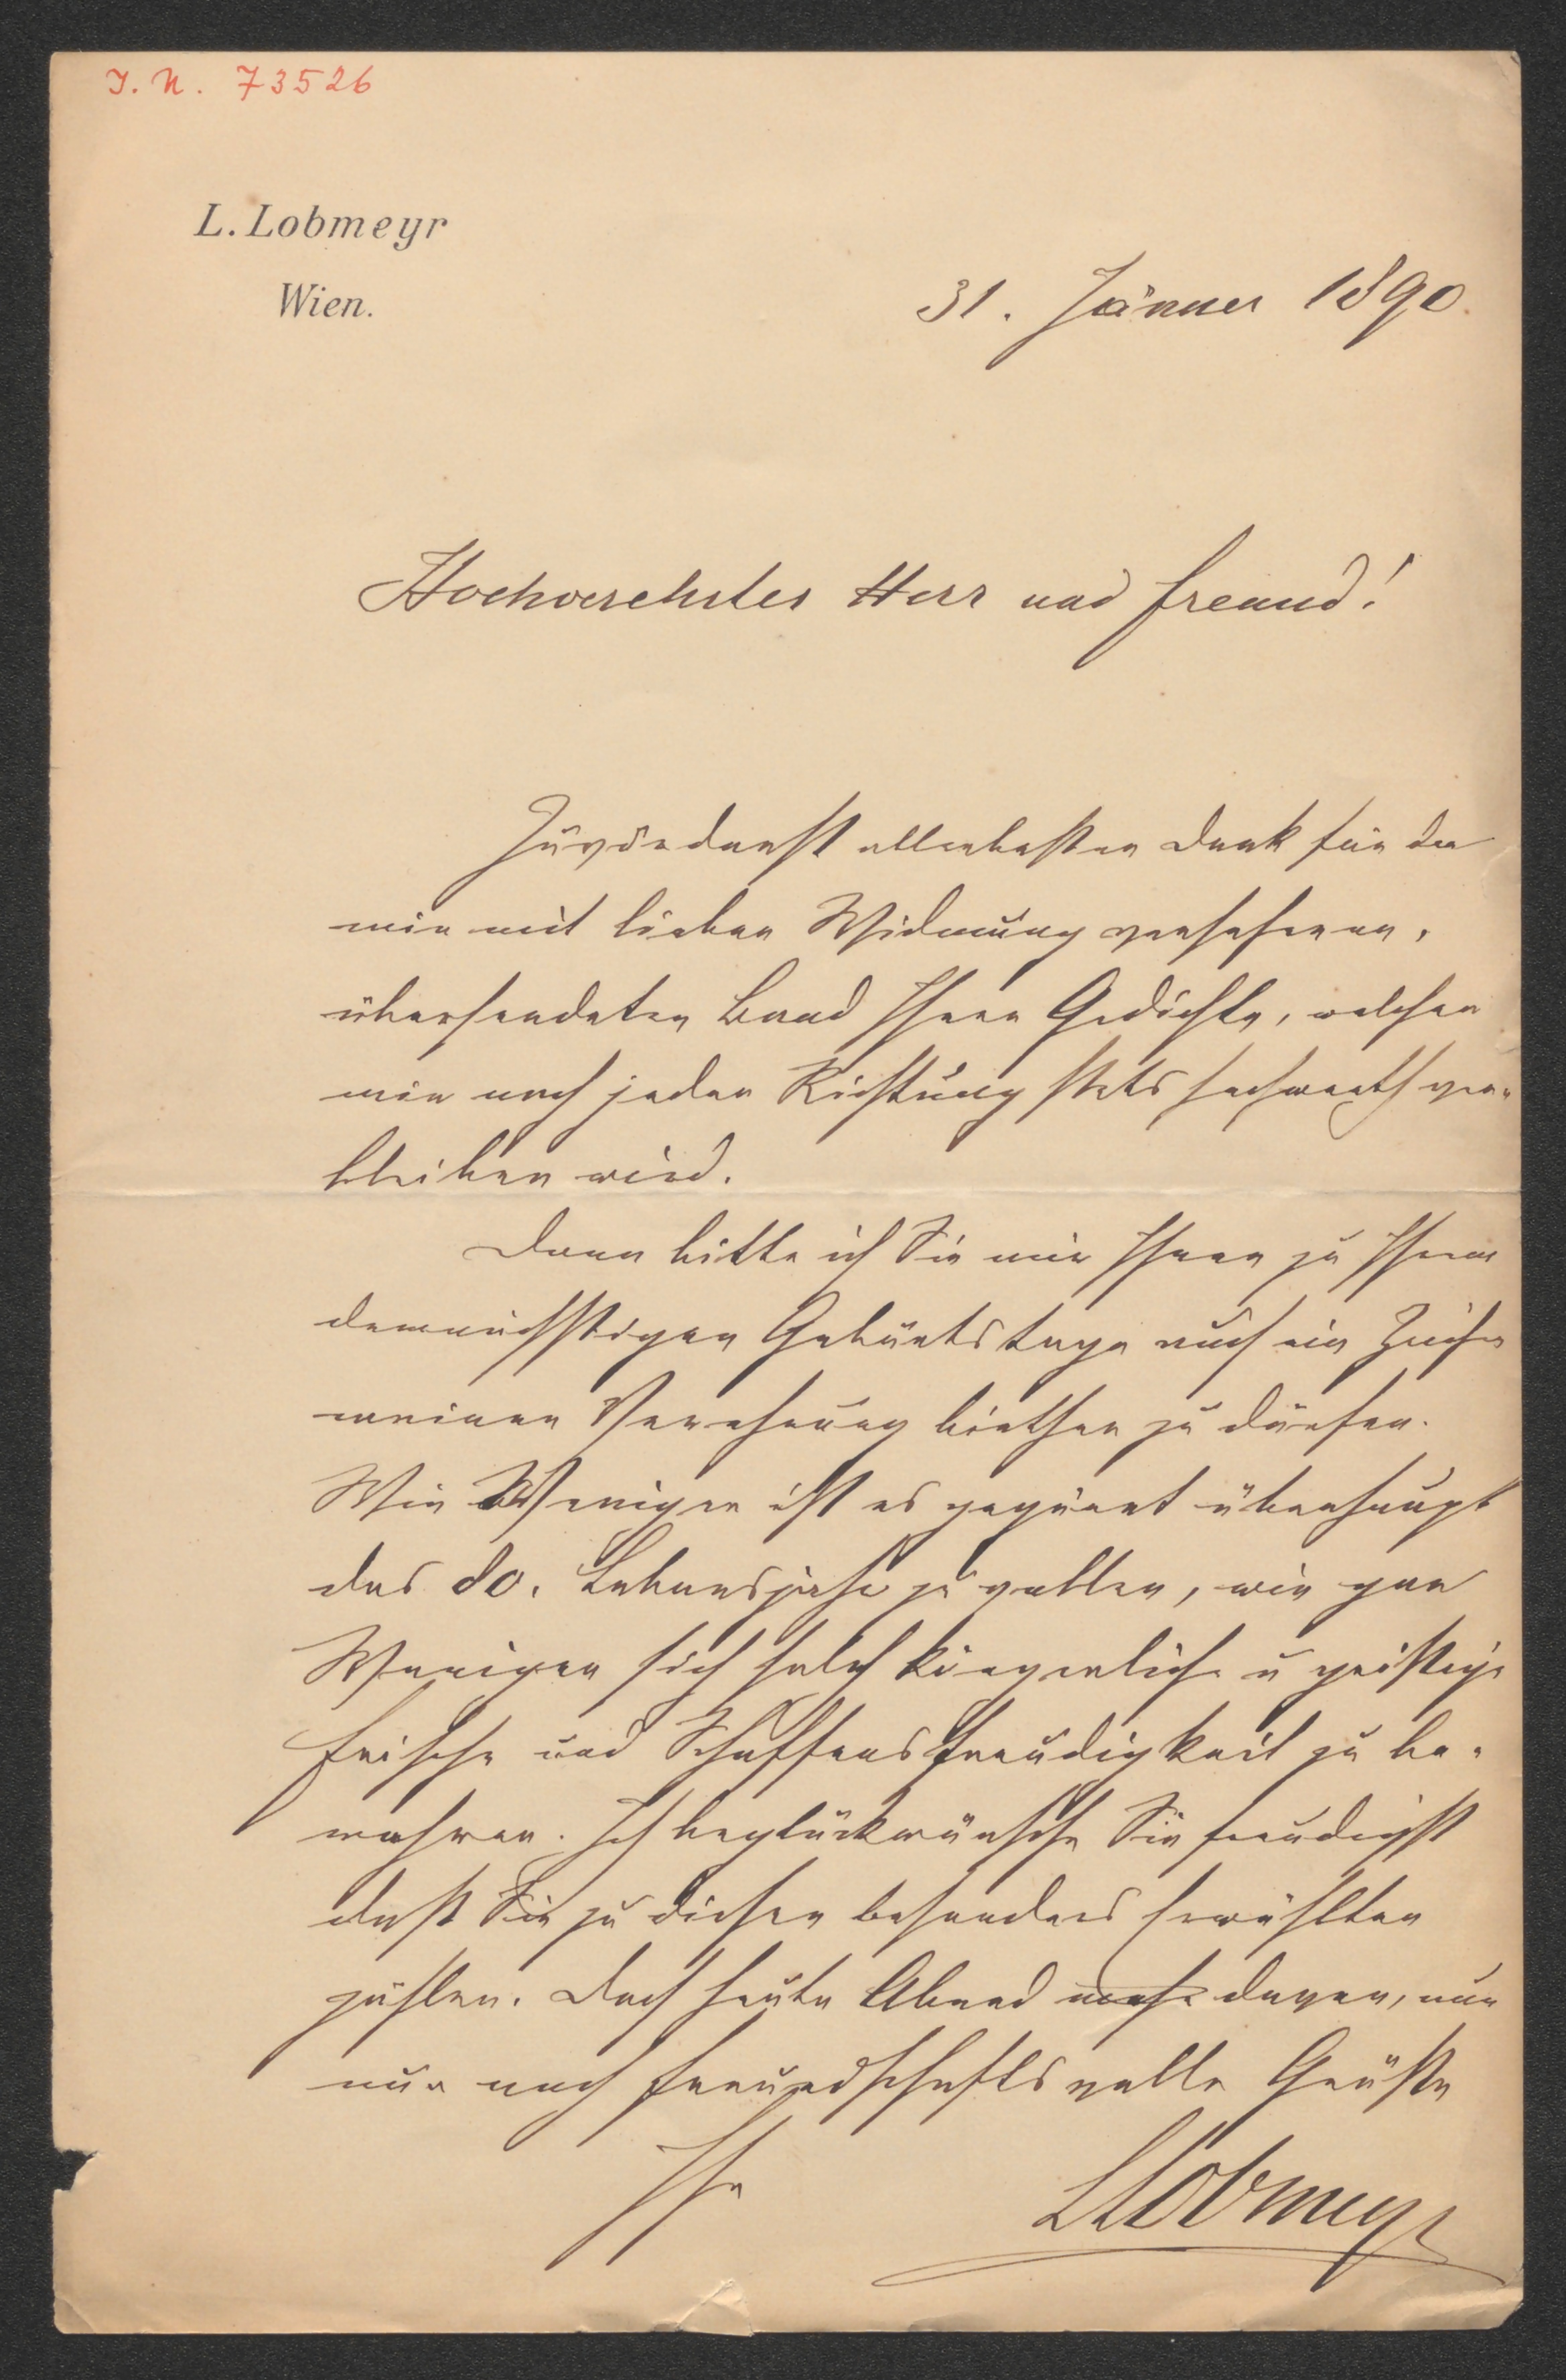 I. N. 73526
L. Lobmeyr
Wien.
31. Jänner 1890.
Hochverehrter Herr und Freund!
Zuvörderst allerbesten Dank für den
mir mit lieber Widmung versehenen,
übersendeten Band Ihrer Gedichte, welcher
mir nach jeder Richtung stets hochwerth ver-
bleiben wird.
Dann bitte ich Sie mir Ihnen zu Ihrem
demnächstigen Geburtstage auch ein Zeichen
meiner Verehrung biethen zu dürfen.
Wie Wenigen ist es gegönnt überhaupt
das 80. Lebensjahr zu vollen, wie gar
Wenigen sich solch körperliche u geistige
Frische und Schaffensfreudigkeit zu be-
wahren. Ich beglückwünsche Sie freudigst
daß Sie zu diesen besonders Erwählten
zählen. Doch heute Abend mehr davon, nun
nur noch freundschaftsvolle Grüße
Ihr
LLobmeyr